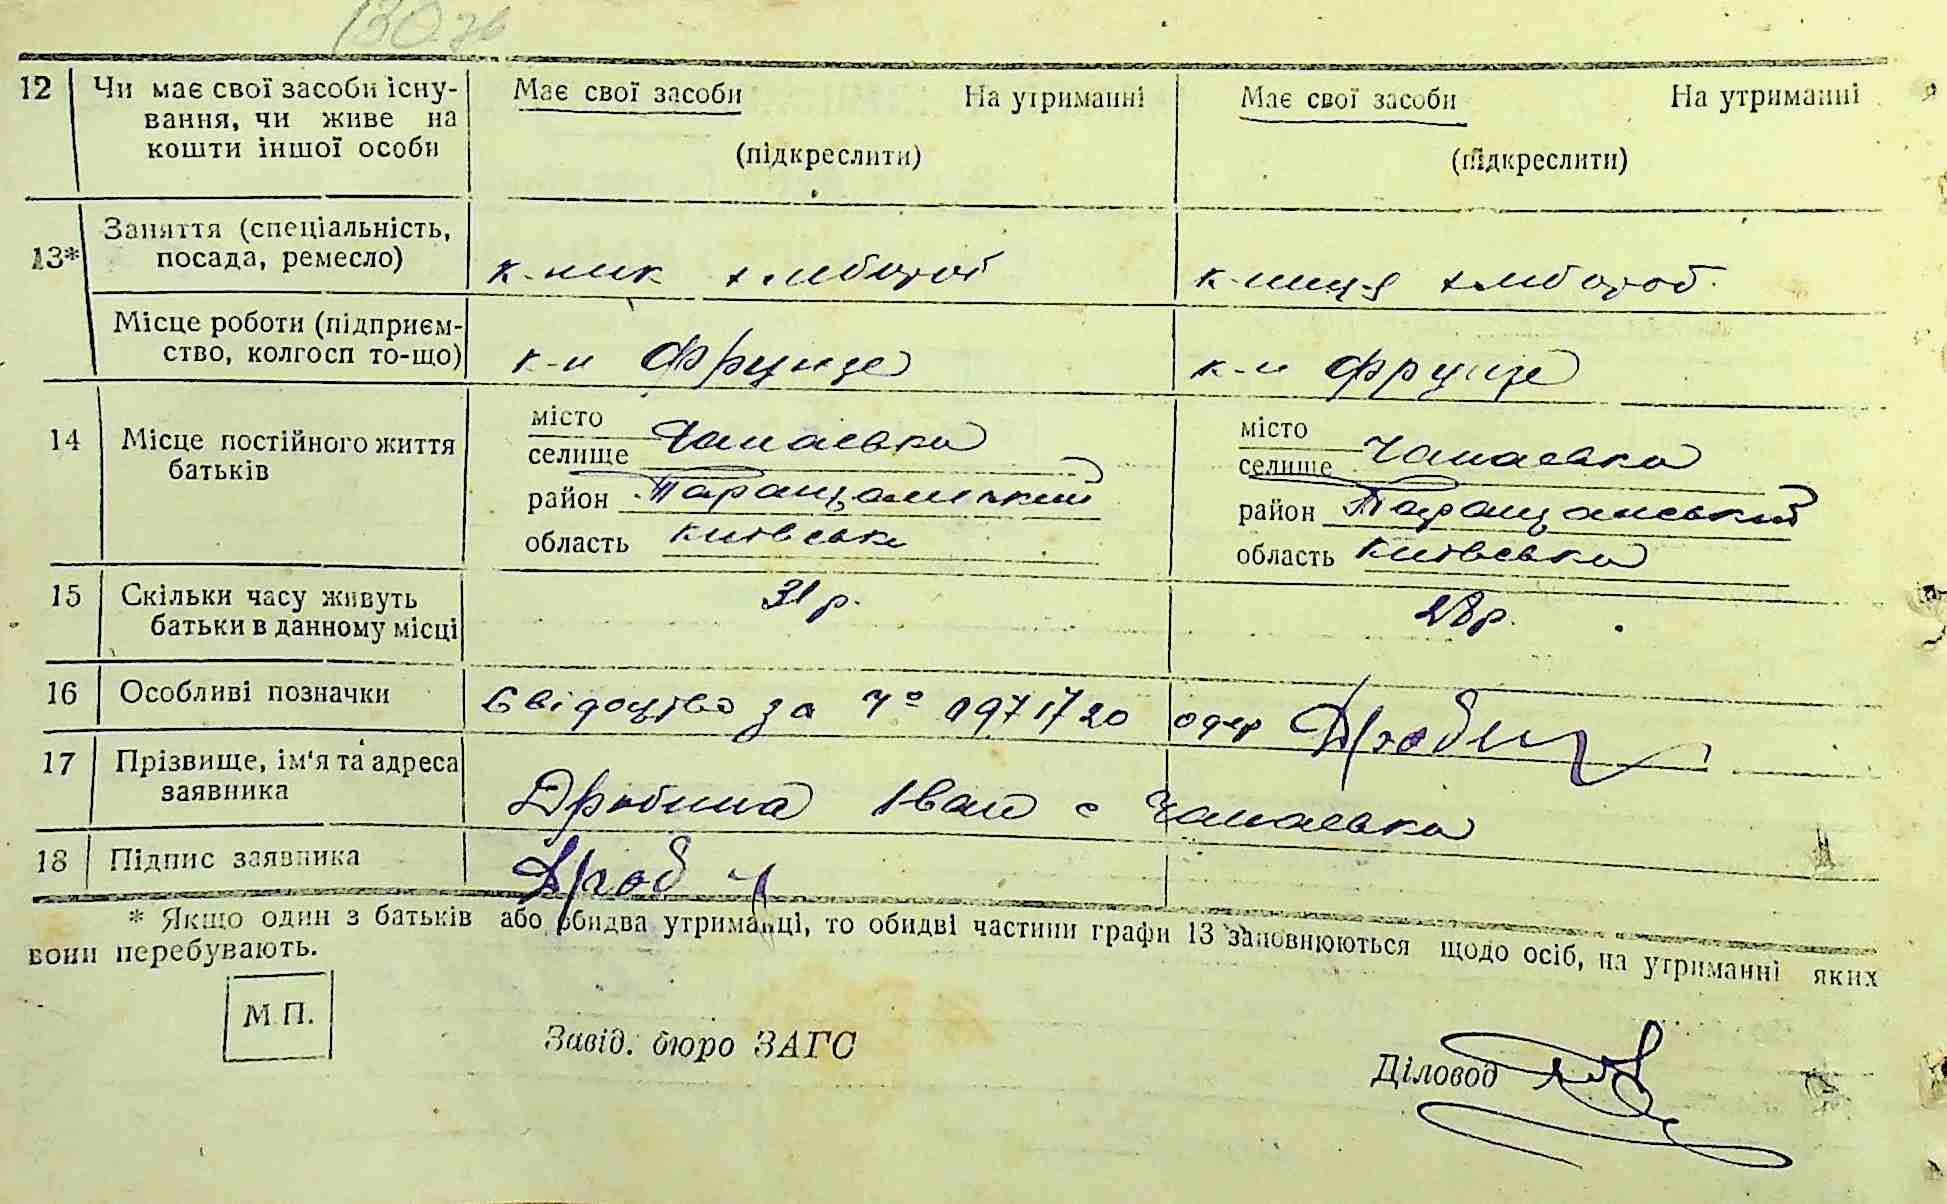 12 Чи має свої засоби існу- Має свої засоби На утриманні Має свої засоби На утриманні
вання, чи живе на
кошти іншої особи (підкреслити) (підкреслити)
13* Заняття (спеціальність,
посада, ремесло) к-ник хлібороб к-ниця хлібороб
Місце роботи (підприєм-
ство, колгосп то-що) к-п Фрунзе к-п Фрунзе
14 Місце постійного життя місто Чапаєвка місто Чапаєвка
батьків селище селище
район Таращанський район Таращанський
область Київська область Київська
15 Скільки часу живуть 31 р. 28 р.
батьки в данному місці
16 Особливі позначки Свідоцтво за № 1971720 одер Дробин
17 Прізвище, ім'я та адреса
заявника Дробина Іван с Чапаєвка
18 Підпис заявника Дроб
* Якщо один з батьків або обидва утриманці, то обидві частини графи 13 заповнюються щодо осіб, на утриманні яких
вони перебувають.
М.П.
Завід. бюро ЗАГС
Діловод